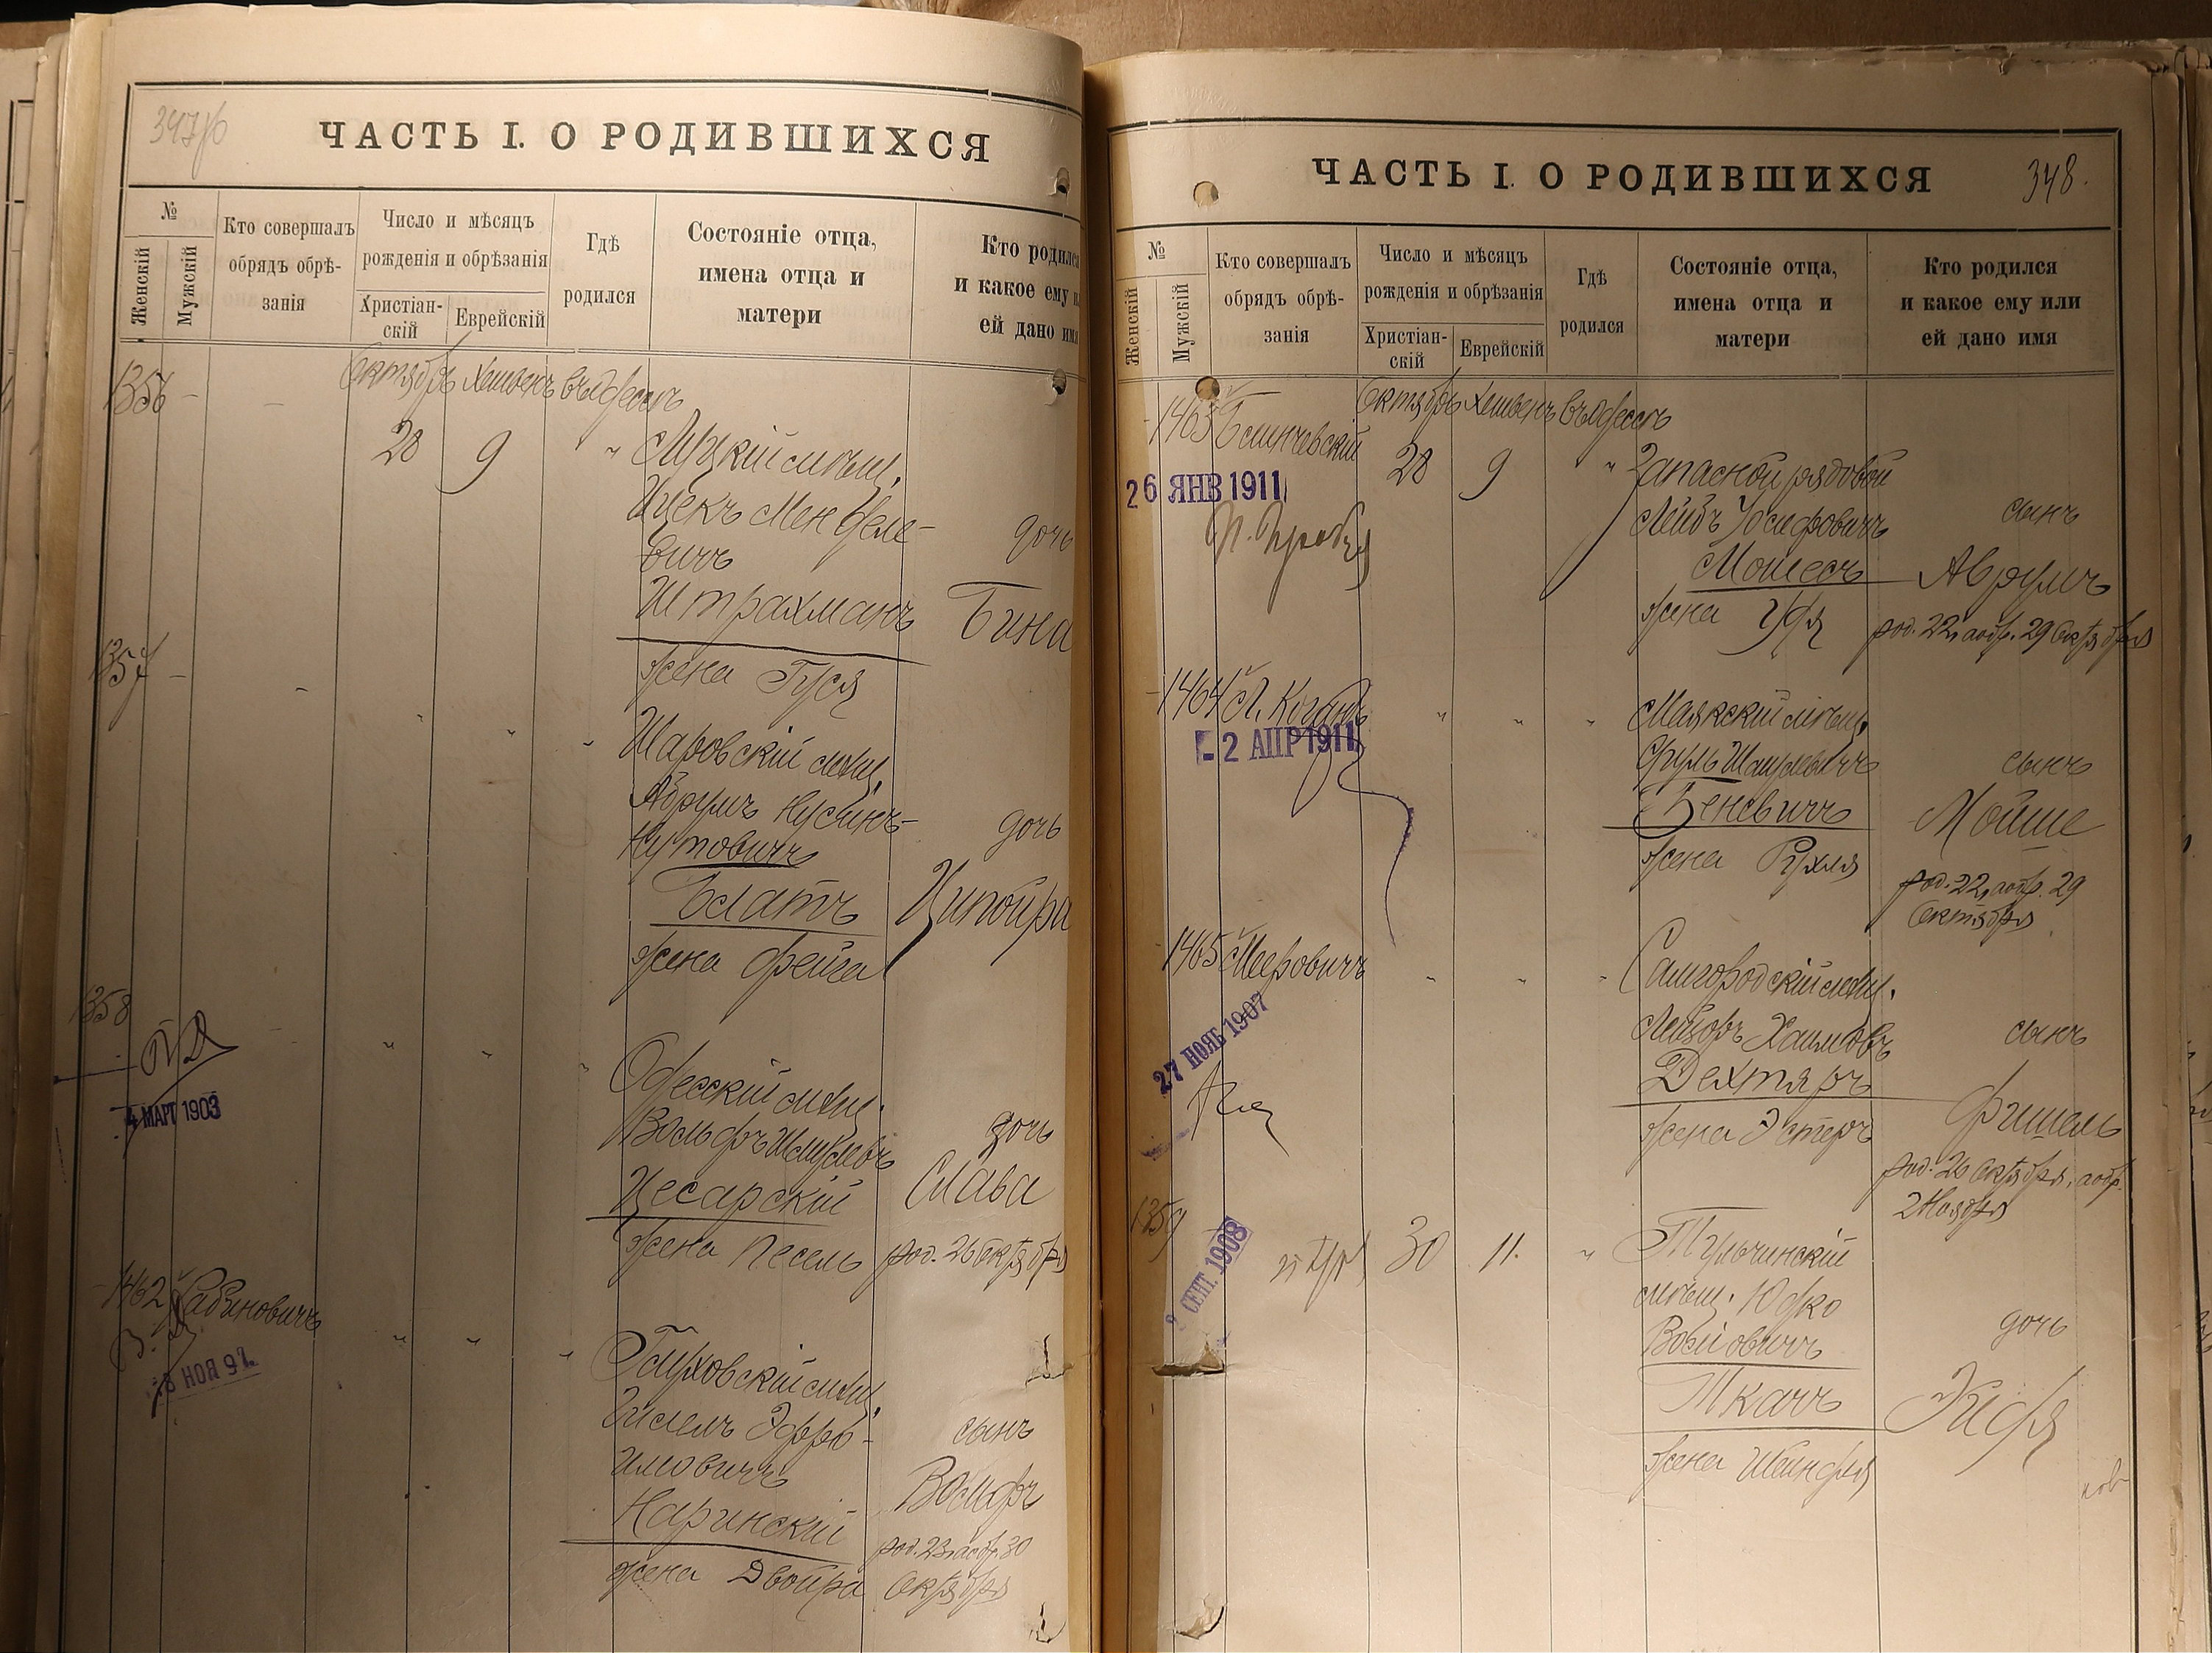 ЧАСТЬ I. О РОДИВШИХСЯ
№
Женскій
Мужскій
Кто совершалъ
обрядъ обрѣ-
занія
Число и мѣсяцъ
рожденія и обрѣзанія
Христіан-
скій
Еврейскій
Гдѣ
родился
Состояніе отца,
имена отца и
матери
Кто родился
и какое ему
ей дано имя
1356
Октябрь Хешвенъ въ Одессѣ
28 9 "
Луцкій мѣщ.
Ицекъ Менделе-
вичъ
Штрахманъ
жена Гуся
дочь
Бина
1357
Шаровскій мѣщ.
Абрумъ Нусинъ-
Нутовичъ
Блатъ
жена Фейга
дочь
Ципойра
1358
4 МАРТ 1903
Одесскій мѣщ.
Вольфъ Шмулевъ
Цесарскій
жена Песель
дочь
Слава
род. 26 Октября
1462 Рабиновичъ
НОЯ 97
мѣщ.
Эфро-
имовичъ
Наринскій
жена Двойра
сынъ
Вольфъ
род. 23, а обр. 30
Октября
ЧАСТЬ I. О РОДИВШИХСЯ
348.
№
Женскій
Мужскій
Кто совершалъ
обрядъ обрѣ-
занія
Число и мѣсяцъ
рожденія и обрѣзанія
Христіан-
скій
Еврейскій
Гдѣ
родился
Состояніе отца,
имена отца и
матери
Кто родился
и какое ему или
ей дано имя
Октябрь Хешвенъ въ Одессѣ
1463
28 9 "
26 ЯНВ 1911
Запасной рядовой
Лейбъ Іосифовичъ
Мошесъ
жена Удя
сынъ
Аврумъ
род. 22, а обр. 29 Октября
1464 Л. Коганъ
2 АПР 1911
Маякскій мѣщ.
Сруль Шмулевичъ
Беневичъ
жена Рухля
сынъ
Мойше
род. 22, а обр. 29
Октября
1465 Мееровичъ
27 НОЯБ 1907
Самгородскій мѣщ.
Лейзоръ Хаимовъ
Дехтяръ
жена Эстеръ
сынъ
Фишель
род. 26 Октября, а обр.
2 Ноября
1359
СЕНТ. 1908
30 11. "
Тульчинскій
мѣщ. Юдко
Ткачъ
жена Шейндля
дочь